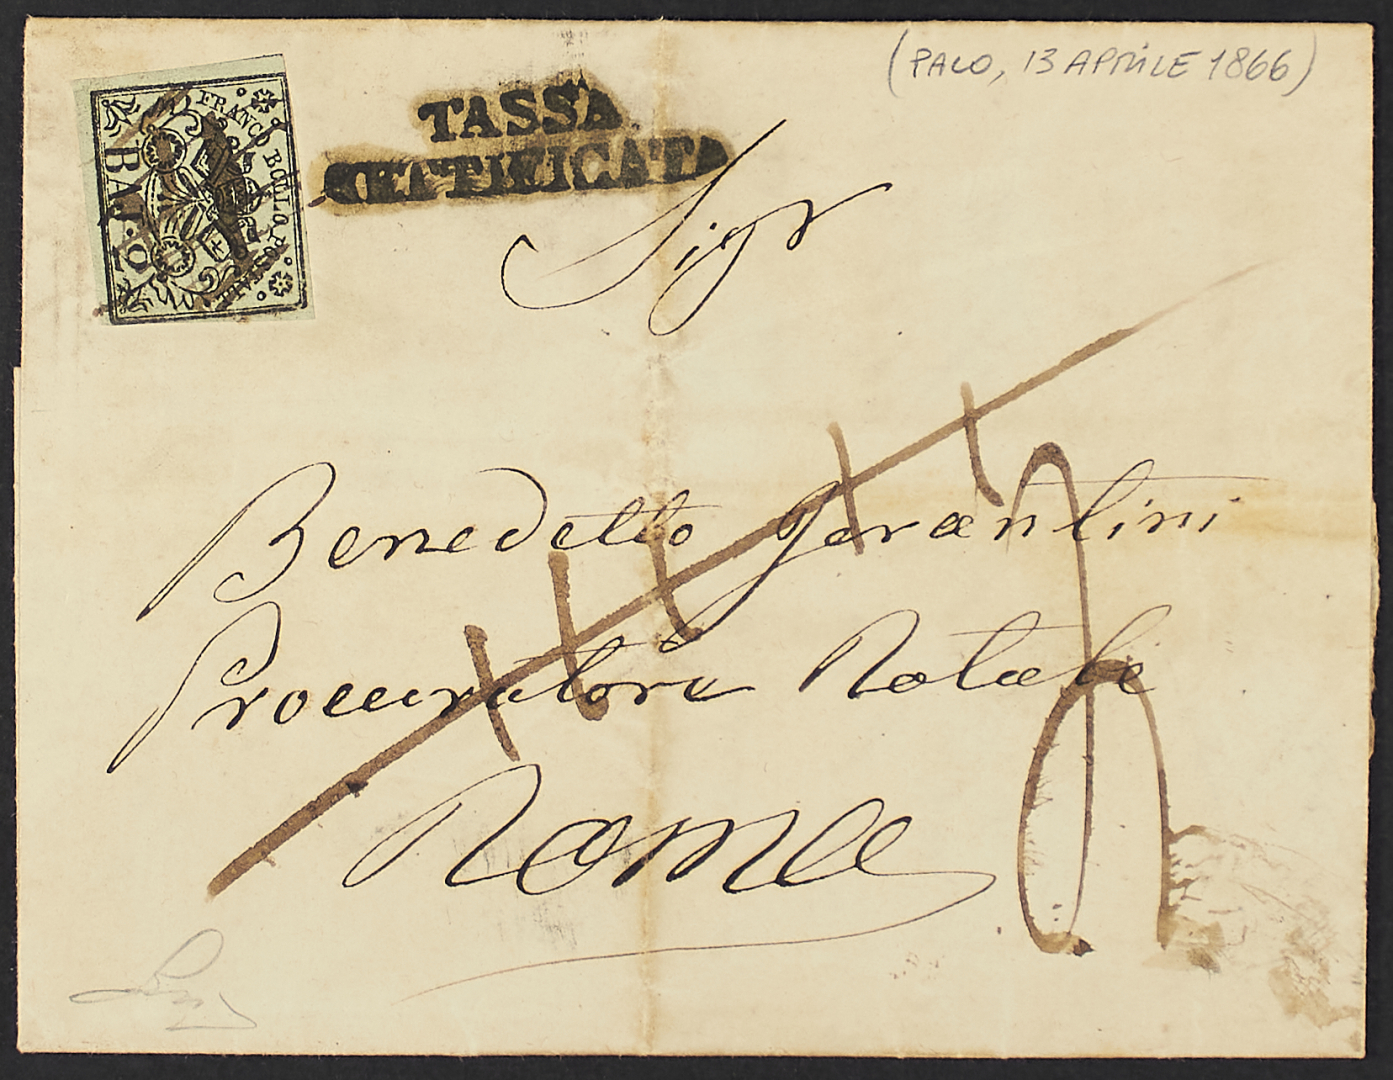 (PALO, 13 APRILE 1866)
FRANCO BOLLO POSTALE
BAJ. 2
TASSA
RETTIFICATA
Sigr
Benedetto Gerantini
Procuratore Rotale
Roma